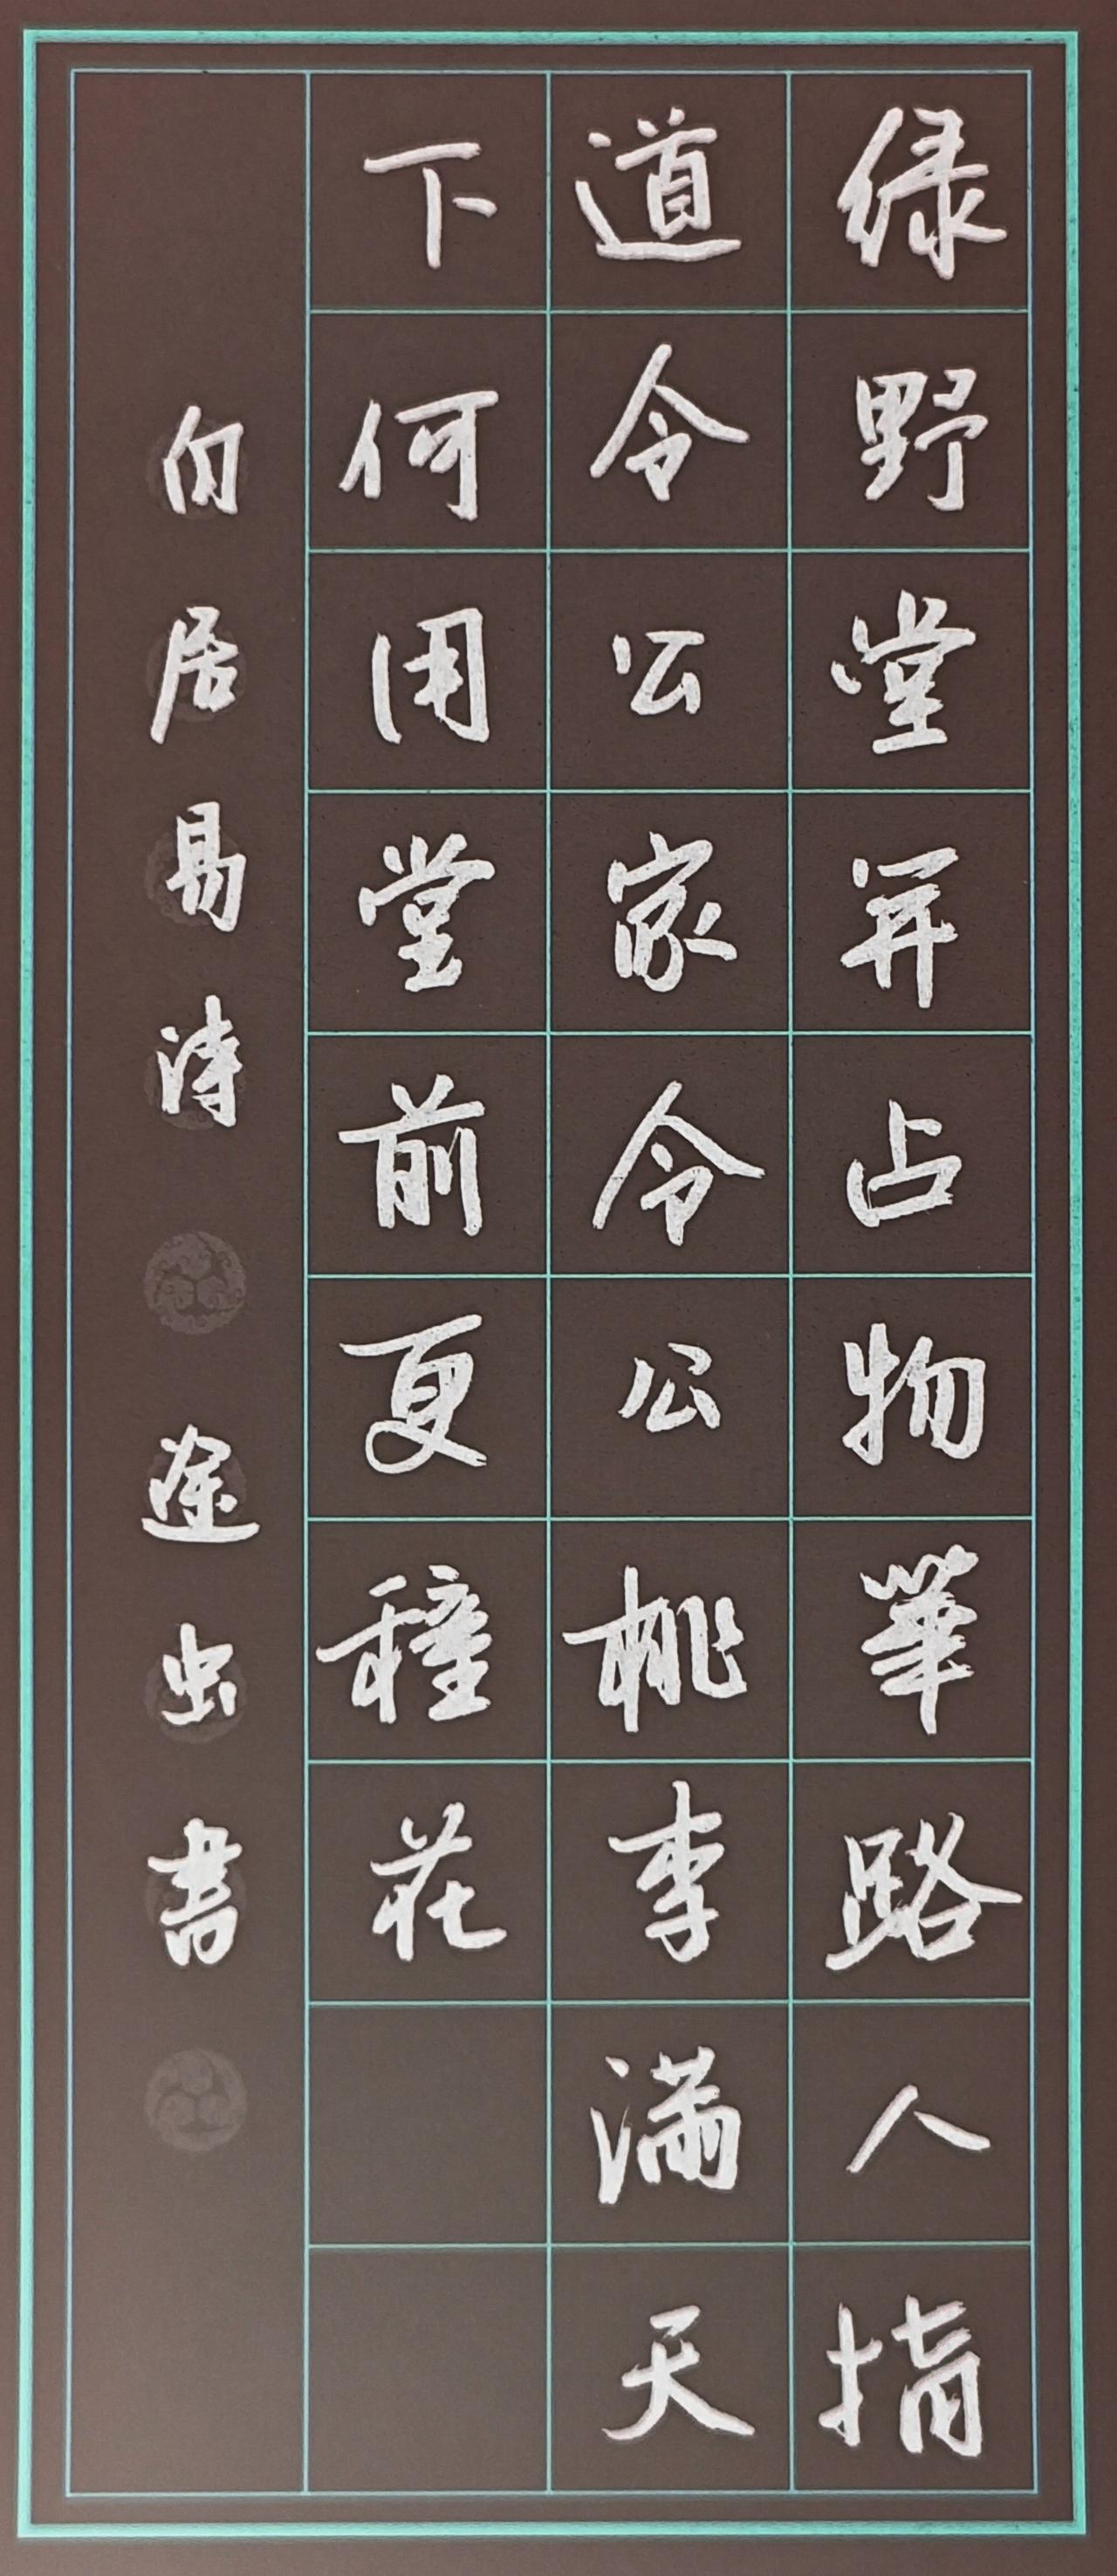 绿野堂開占物華路人指
道令公家令公桃李满天
下何用堂前更種花
白居易诗 途虫書